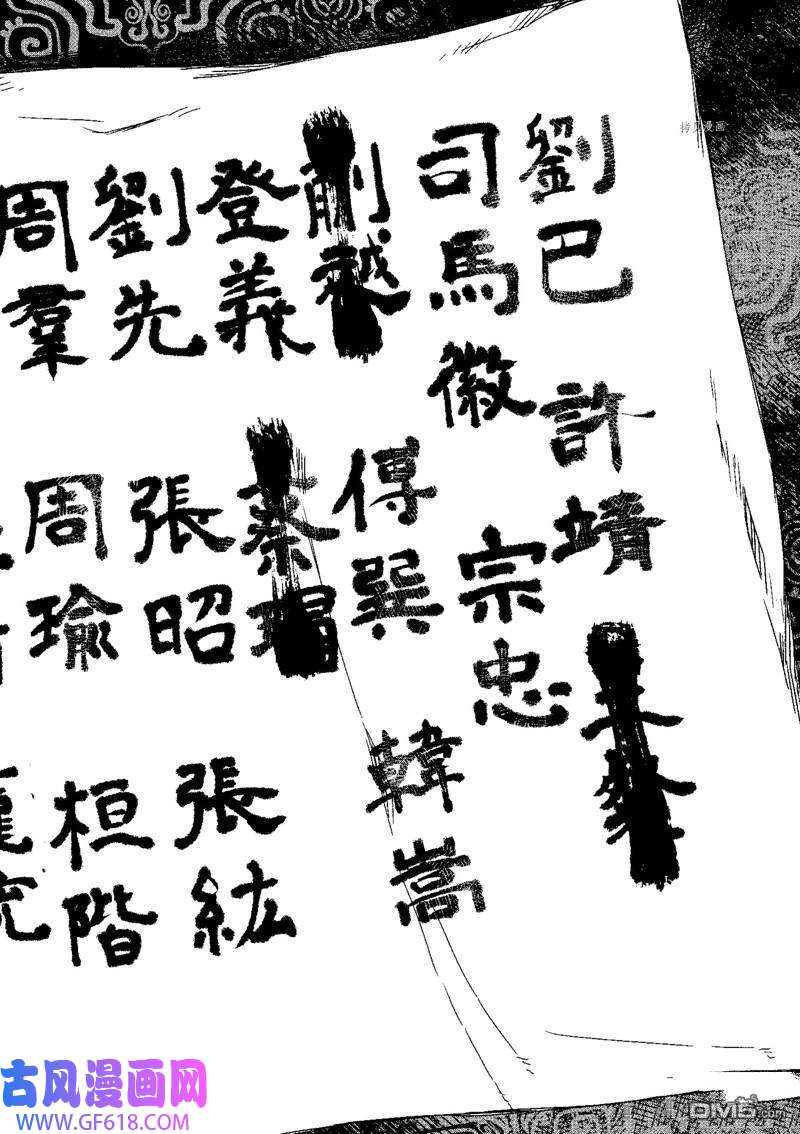 拷贝漫画
劉巴 許靖
司馬徽 宗忠
蒯越 傅巽 韓嵩
登義 蔡瑁
劉先 張昭 張紘
周羣 周瑜 桓階
古风漫画网
WWW.GF618.COM